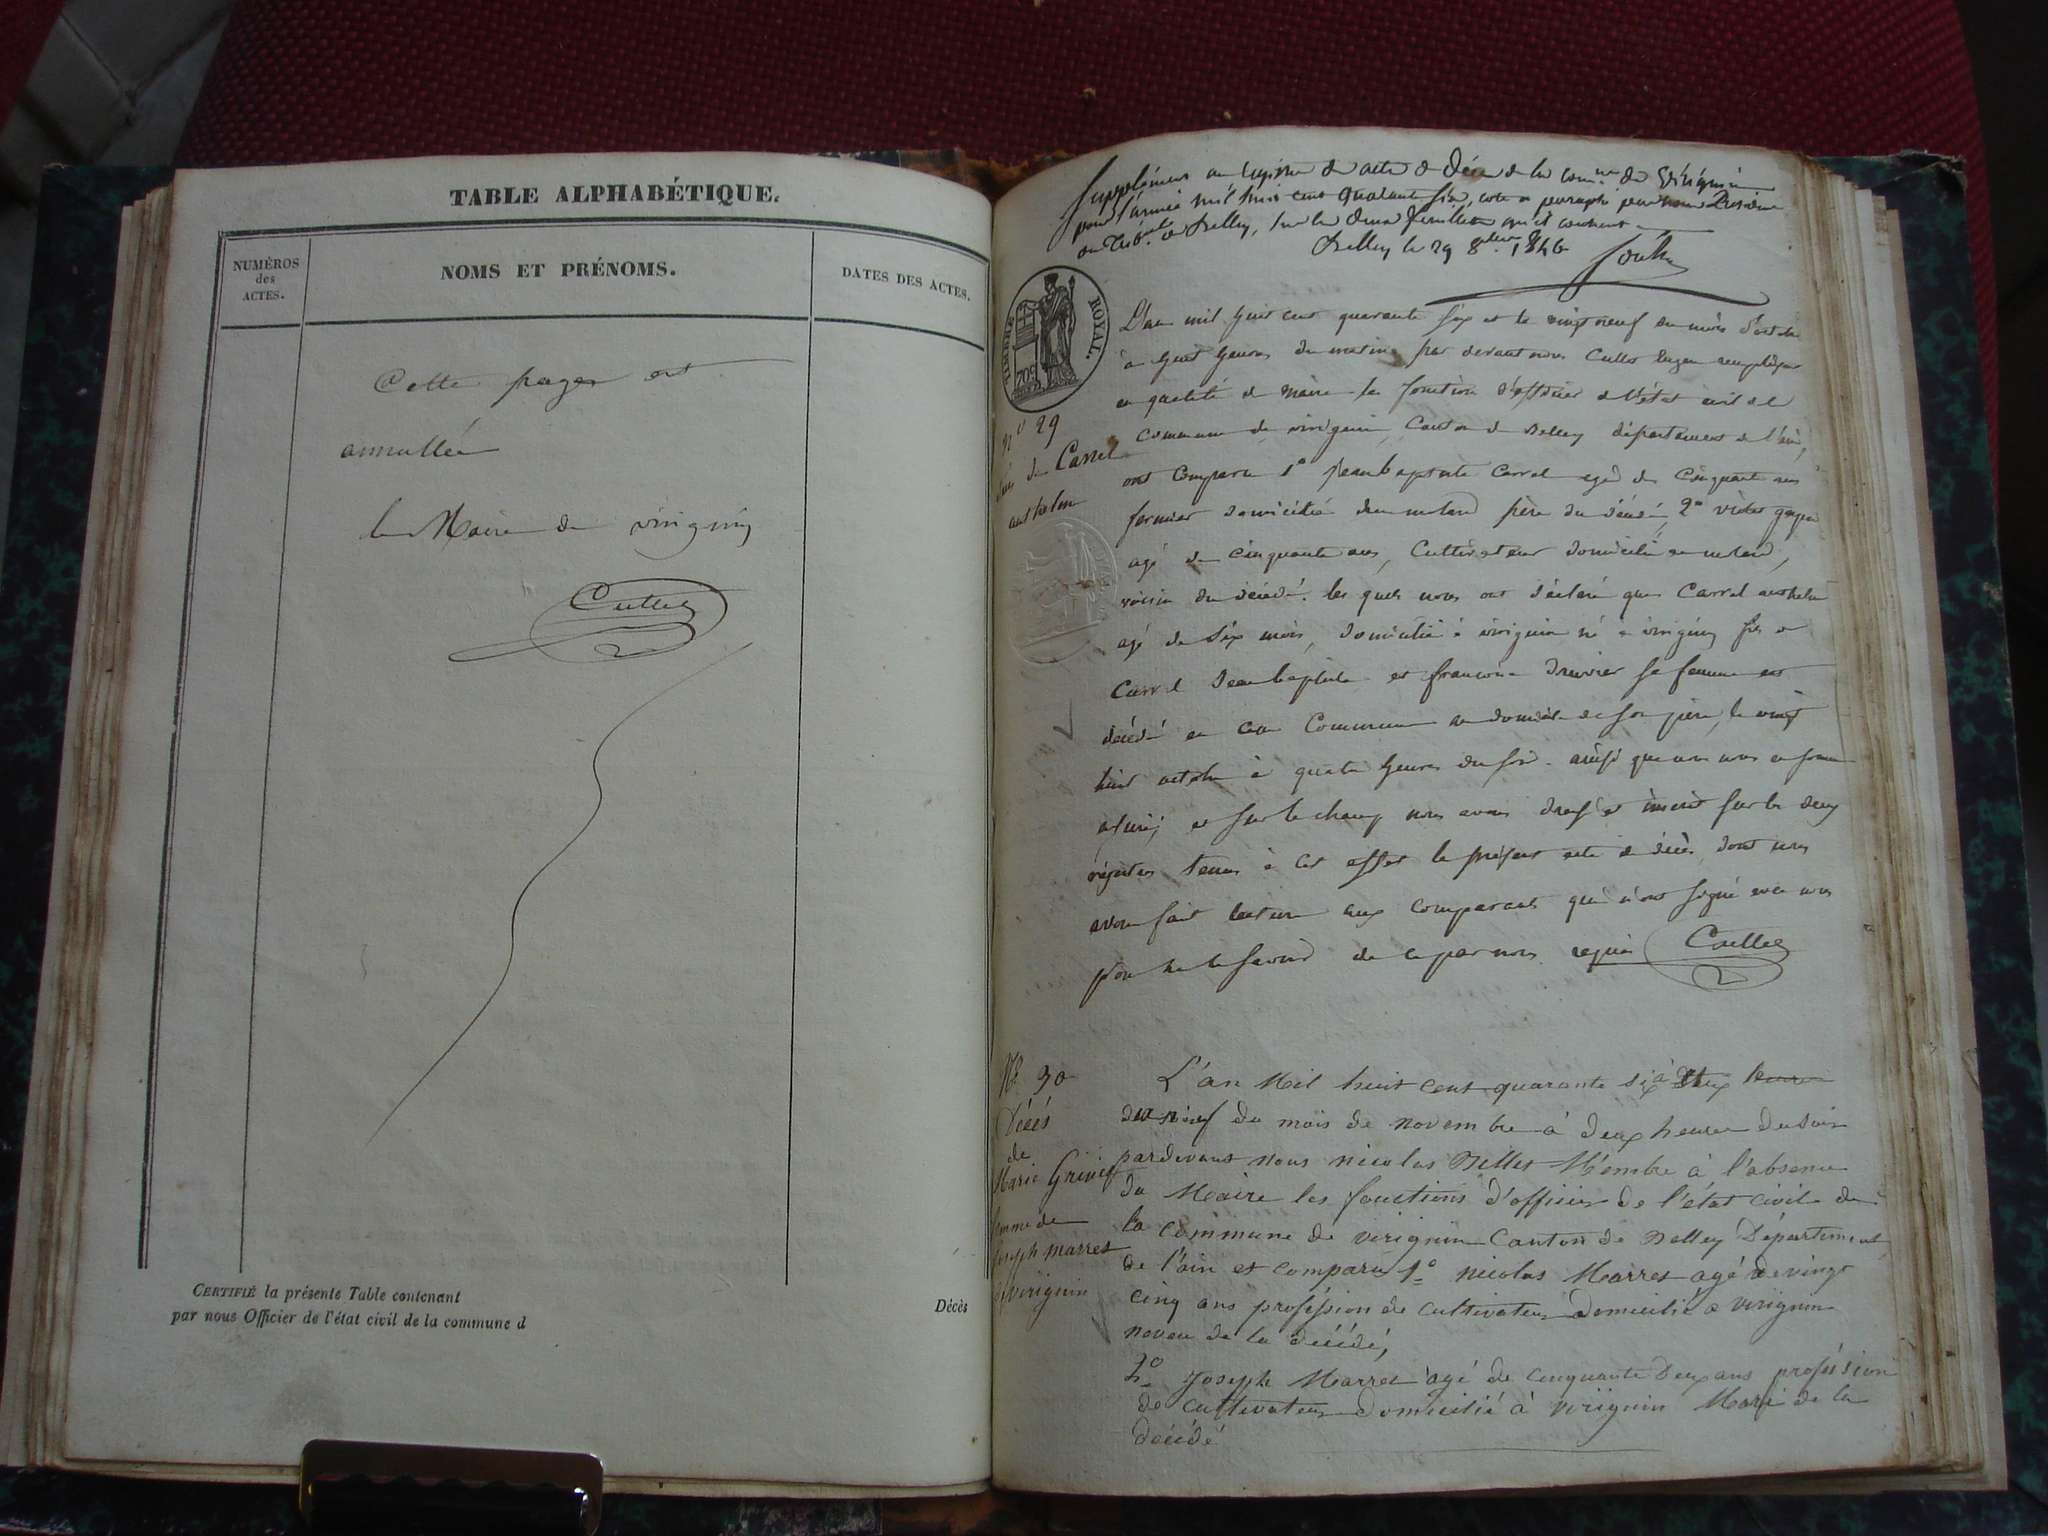 TABLE ALPHABÉTIQUE.
NUMÉROS
des
ACTES.
NOMS ET PRÉNOMS.
DATES DES ACTES.
Cette page est
annullée
le Maire de virignin
Cullet
CERTIFIÉ la présente Table contenant
par nous Officier de l'état civil de la commune d
Décès
Supplément au registre de acte de Décès de la comne de Virignin
pour l'année mil huit cent quarante six, coté et paraphé par nous Président
du Tribal de Belley, sur les deux feuillets qu'il contient
Belley le 29 8bre 1846
TIMBRE ROYAL.
No 29
de Carrel
anthelme
L'an mil huit cent quarante six et le vingt neuf du mois d'octobre
à huit heures du matin par devant nous Cullet
en qualité de maire les fonctions d'officier de l'état civil de
commune de virignin, Canton de Belley département de l'ain,
ont comparu 1o Jean baptiste Carrel agé de cinquante ans
fermier domicilié père du décédé, 2o
agé de cinquante ans, Cultivateur domicilié
voisin du décédé. les quels nous ont déclaré que Carrel anthelme
agé de six mois, domicilié à virignin né à virignin fils de
Carrel Jean baptiste et françoise sa femme est
décédé en cette Commune au domicile de son père, le vingt
huit octobre à quatre heures du soir. ainsi que nous nous en sommes
assuré, et sur le champ nous avons dressé et inscrit sur les deux
régistres tenus à cet effet le présent acte de décès, dont nous
avons fait lecture aux comparants qui n'ont signé avec nous
pour ne le savoir de ce par nous requis Cullet
No 30
Décès
de
Marie Grinet
femme de
Joseph Marret
virignin
L'an Mil huit cent quarante six à deux heures
du mois de novembre à deux heures du soir
pardevant nous nicolas Billet Membre à l'absence
du Maire les fonctions d'officier de l'état civil de
la commune de virignin Canton de Belley Département
de l'ain et comparu 1o nicolas Marret agé de vingt
cinq ans proféssion de cultivateur domicilié a virignin
neveu de la décédé,
2o Joseph Marret agé de cinquante deux ans proféssion
de cultivateur domicilié à virignin Mari de la
décédé